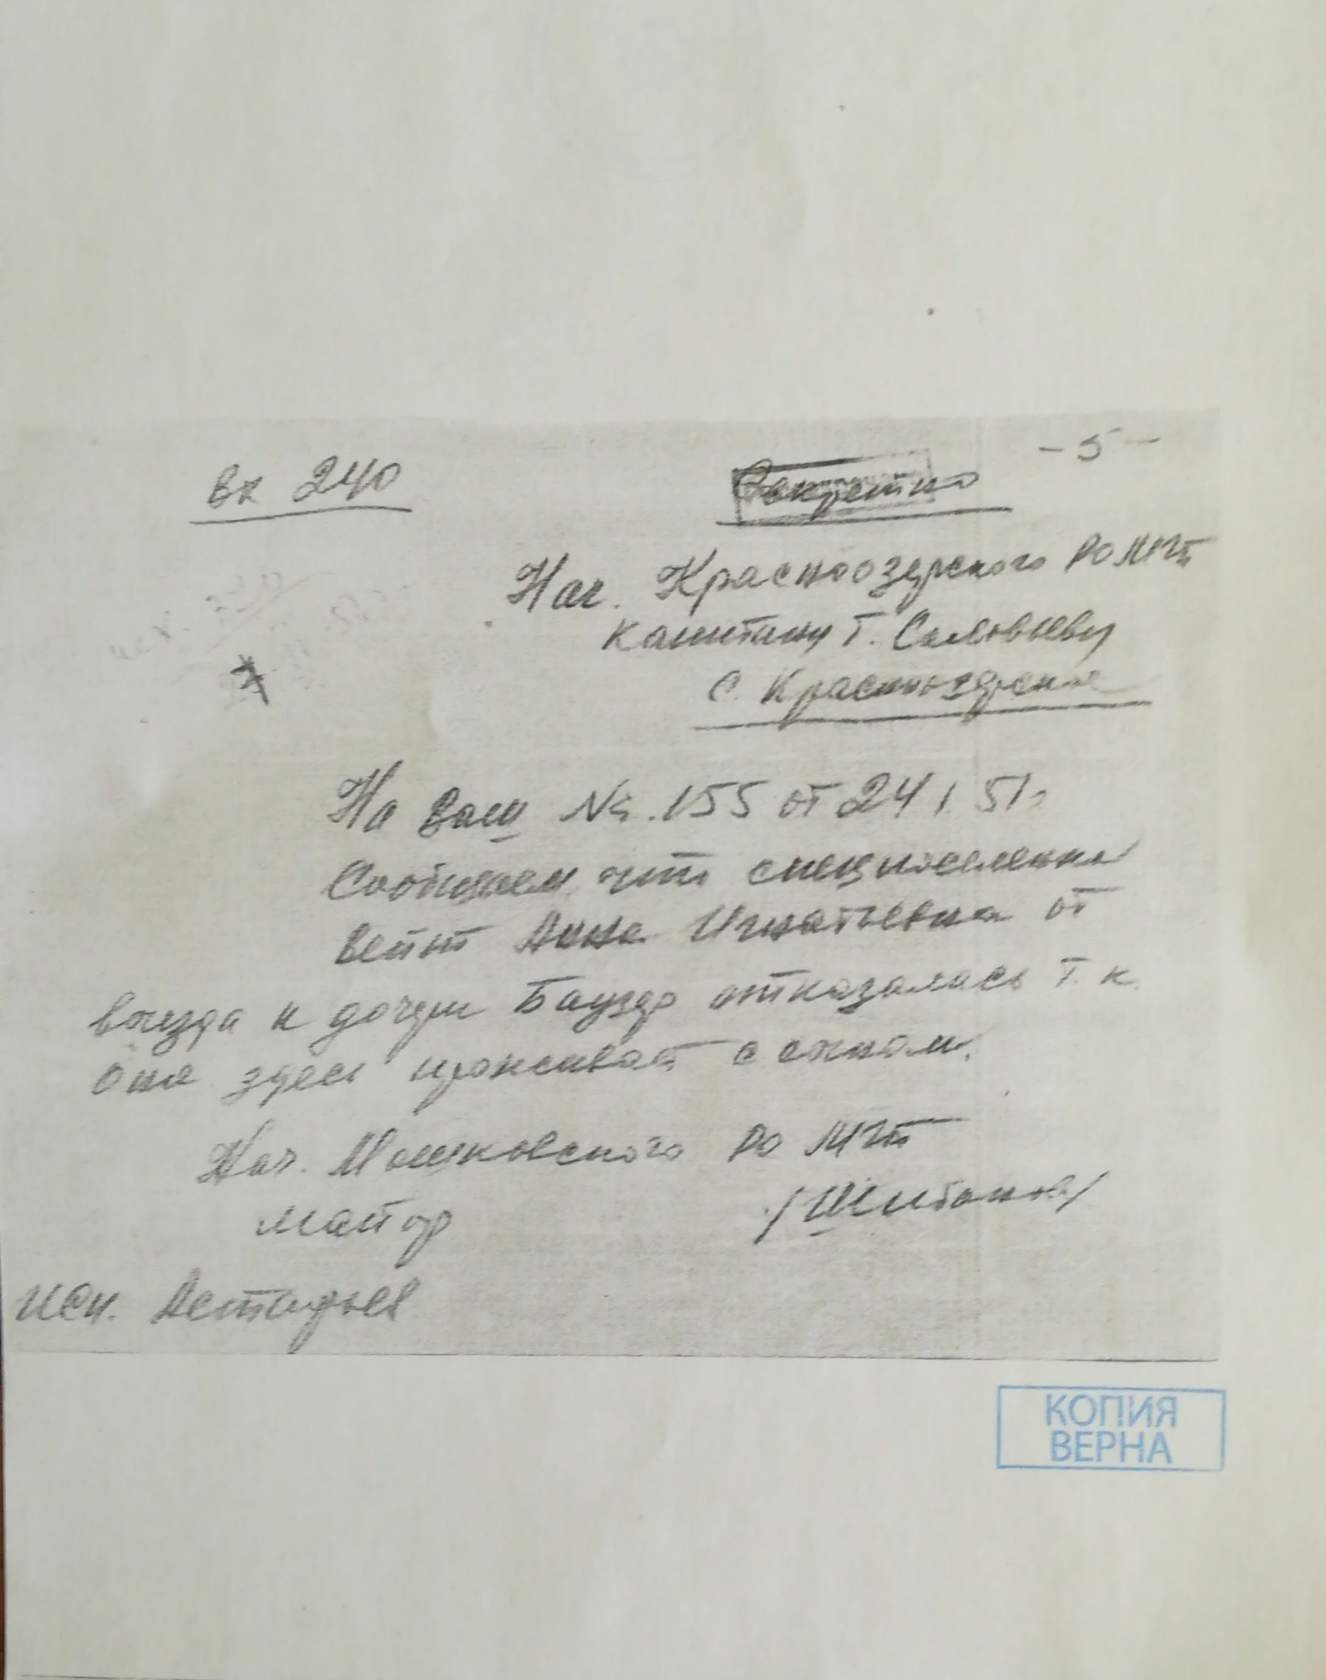 - 5 -
Вх 240
Секретно
Нач. Краснозерского РО МГБ
капитану т. Соловьеву
с. Краснозерское
7
На Ваш №.155 от 24/I.51г
Сообщаем, что спецпоселенка
Вейт Анна Игнатьевна от
выезда к дочери Баузер отказалась т.к.
она здесь проживает с сыном.
Нач. Мошковского РО МГБ
майор /Шибанов/
исп. Астафьев
КОПИЯ
ВЕРНА